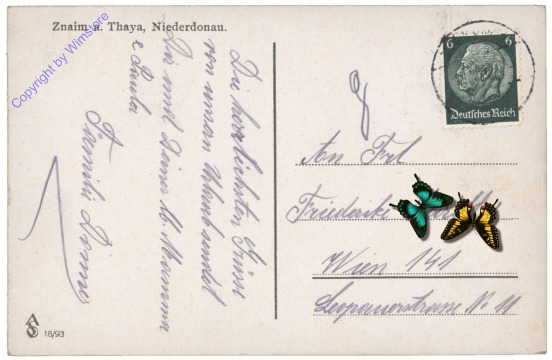 Znaim a. Thaya, Niederdonau.
Copyright by Wimstore
Die herzlichsten Grüsse
von unsern Urlaub sendet
Dir und Deiner lb. Mamma
Familie
18/93
6 6
Deutsches Reich
An Frl
Friederike
Wien 141
Leopauerstrasse No 11